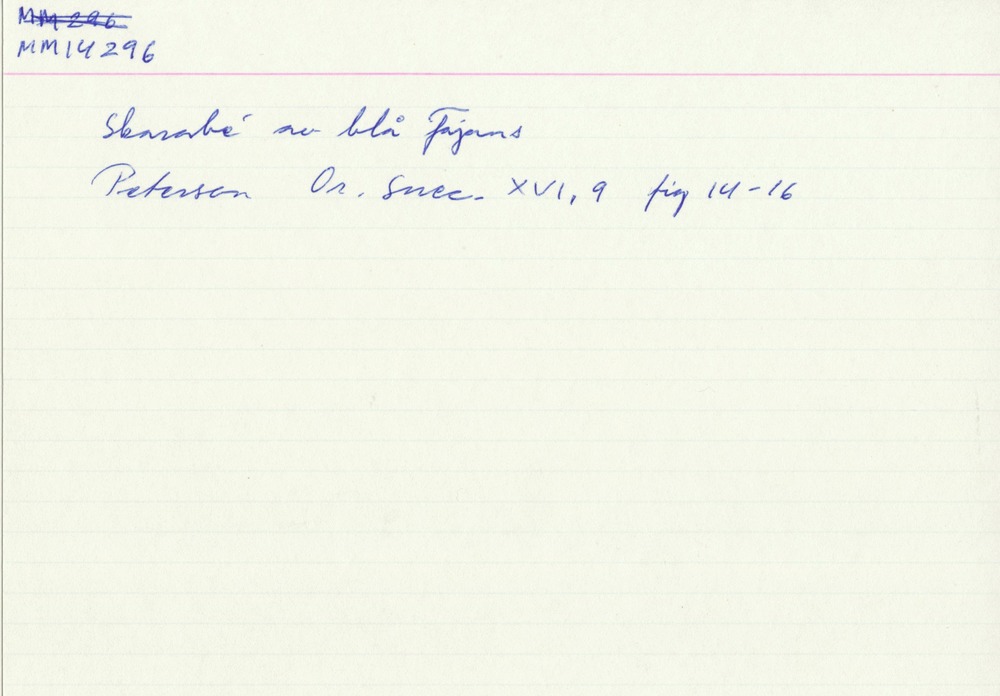 MM 296
MM14296
Skarabé av blå Fajans
Peterson Or. Suec. XVI, 9 fig 14-16